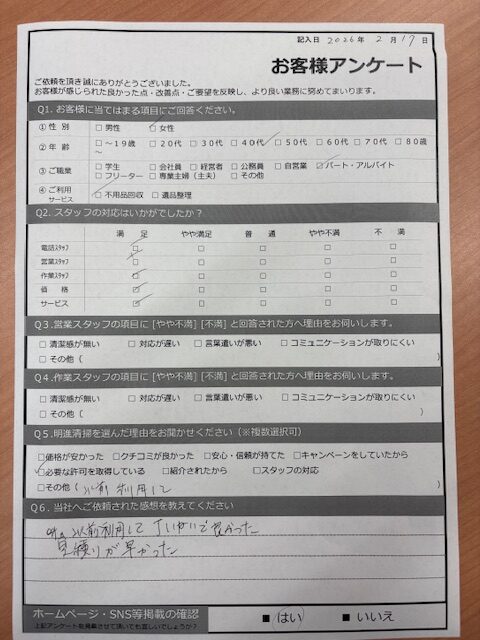 記入日 2026年 2月 17日
お客様アンケート
ご依頼を頂き誠にありがとうございました。
お客様が感じられた良かった点・改善点・ご要望を反映し、より良い業務に努めてまいります。
Q1. お客様に当てはまる項目にご回答ください。
①性 別 □男性 □女性
②年 齢 □~19歳 □20代 □30代 □40代 □50代 □60代 □70代 □80歳~
③ご職業 □学生 □会社員 □経営者 □公務員 □自営業 □パート・アルバイト
□フリーター □専業主婦(主夫) □その他
④ご利用サービス □不用品回収 □遺品整理
Q2. スタッフの対応はいかがでしたか?
満 足 やや満足 普 通 やや不満 不 満
電話スタッフ □ □ □ □ □
営業スタッフ □ □ □ □ □
作業スタッフ □ □ □ □ □
価 格 □ □ □ □ □
サービス □ □ □ □ □
Q3.営業スタッフの項目に [やや不満] [不満] と回答された方へ理由をお伺いします。
□清潔感が無い □対応が遅い □言葉遣いが悪い □コミュニケーションが取りにくい
□その他 ( )
Q4.作業スタッフの項目に [やや不満] [不満] と回答された方へ理由をお伺いします。
□清潔感が無い □対応が遅い □言葉遣いが悪い □コミュニケーションが取りにくい
□その他 ( )
Q5.明進清掃を選んだ理由をお聞かせください(※複数選択可)
□価格が安かった □クチコミが良かった □安心・信頼が持てた □キャンペーンをしていたから
□必要な許可を取得している □紹介されたから □スタッフの対応
□その他 ( 以前利用して )
Q6. 当社へご依頼された感想を教えてください
以前利用して ていねいで良かった
見積りが早かった
ホームページ・SNS等掲載の確認
上記アンケートを掲載させて頂いても宜しいでしょうか?
■ はい ■ いいえ